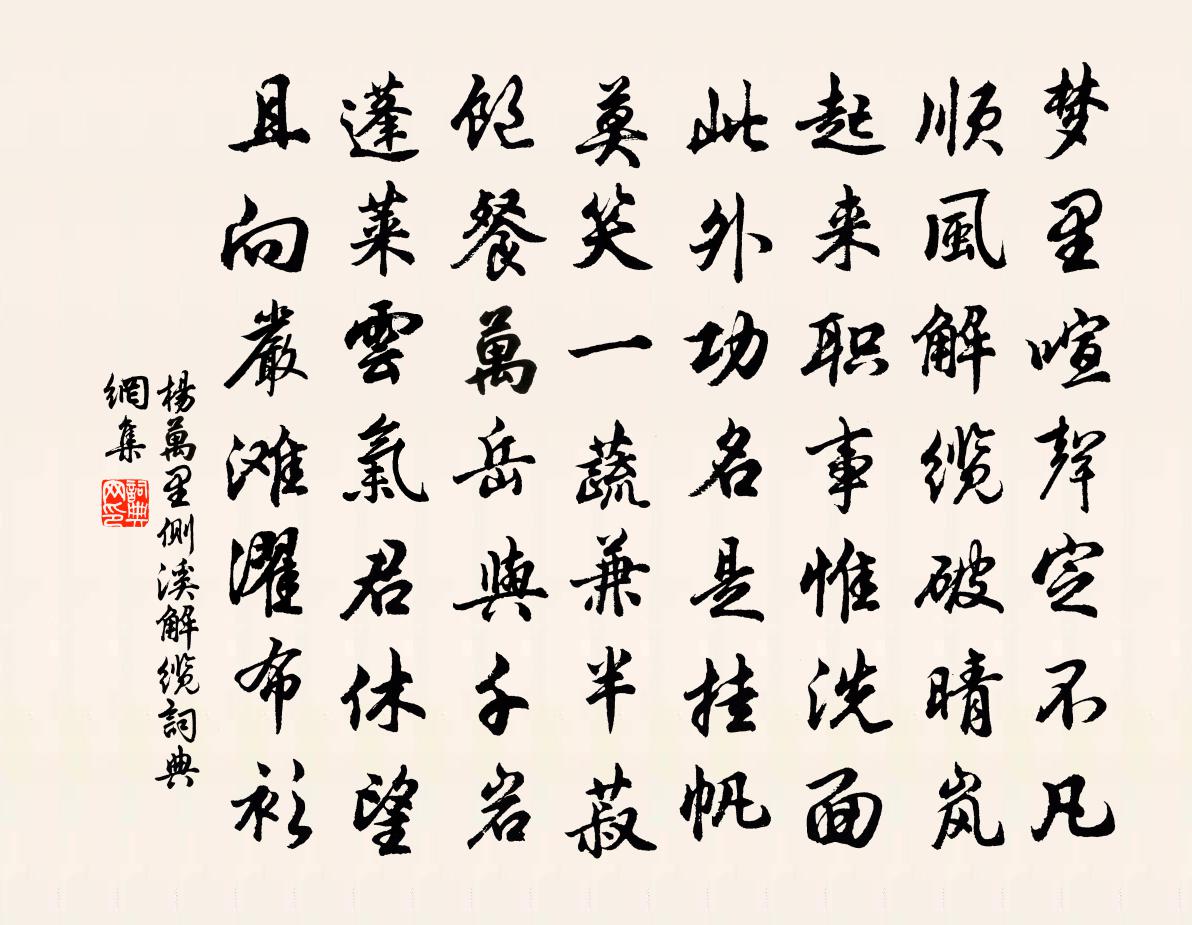 梦里喧聲定不凡
顺風解缆破晴岚
起来职事惟洗面
此外功名是挂帆
莫笑一蔬兼半菽
饱餐萬岳與千岩
蓬莱雲氣君休望
且向嚴滩濯布衫
楊萬里側溪解缆詞典
網集
詞典网印